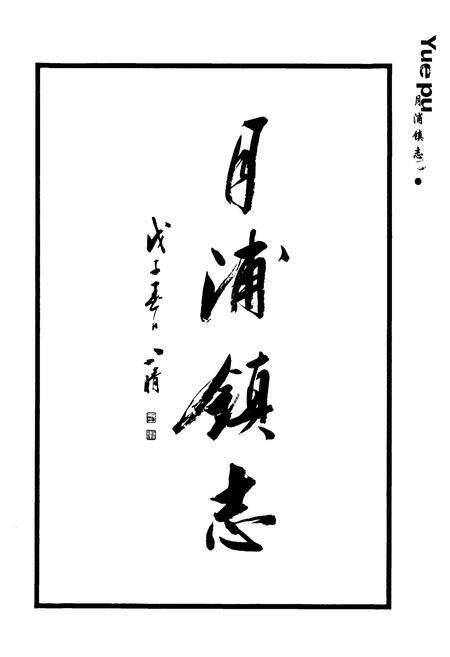 Yue pu
月浦镇志
月浦鎮志
戊子春日